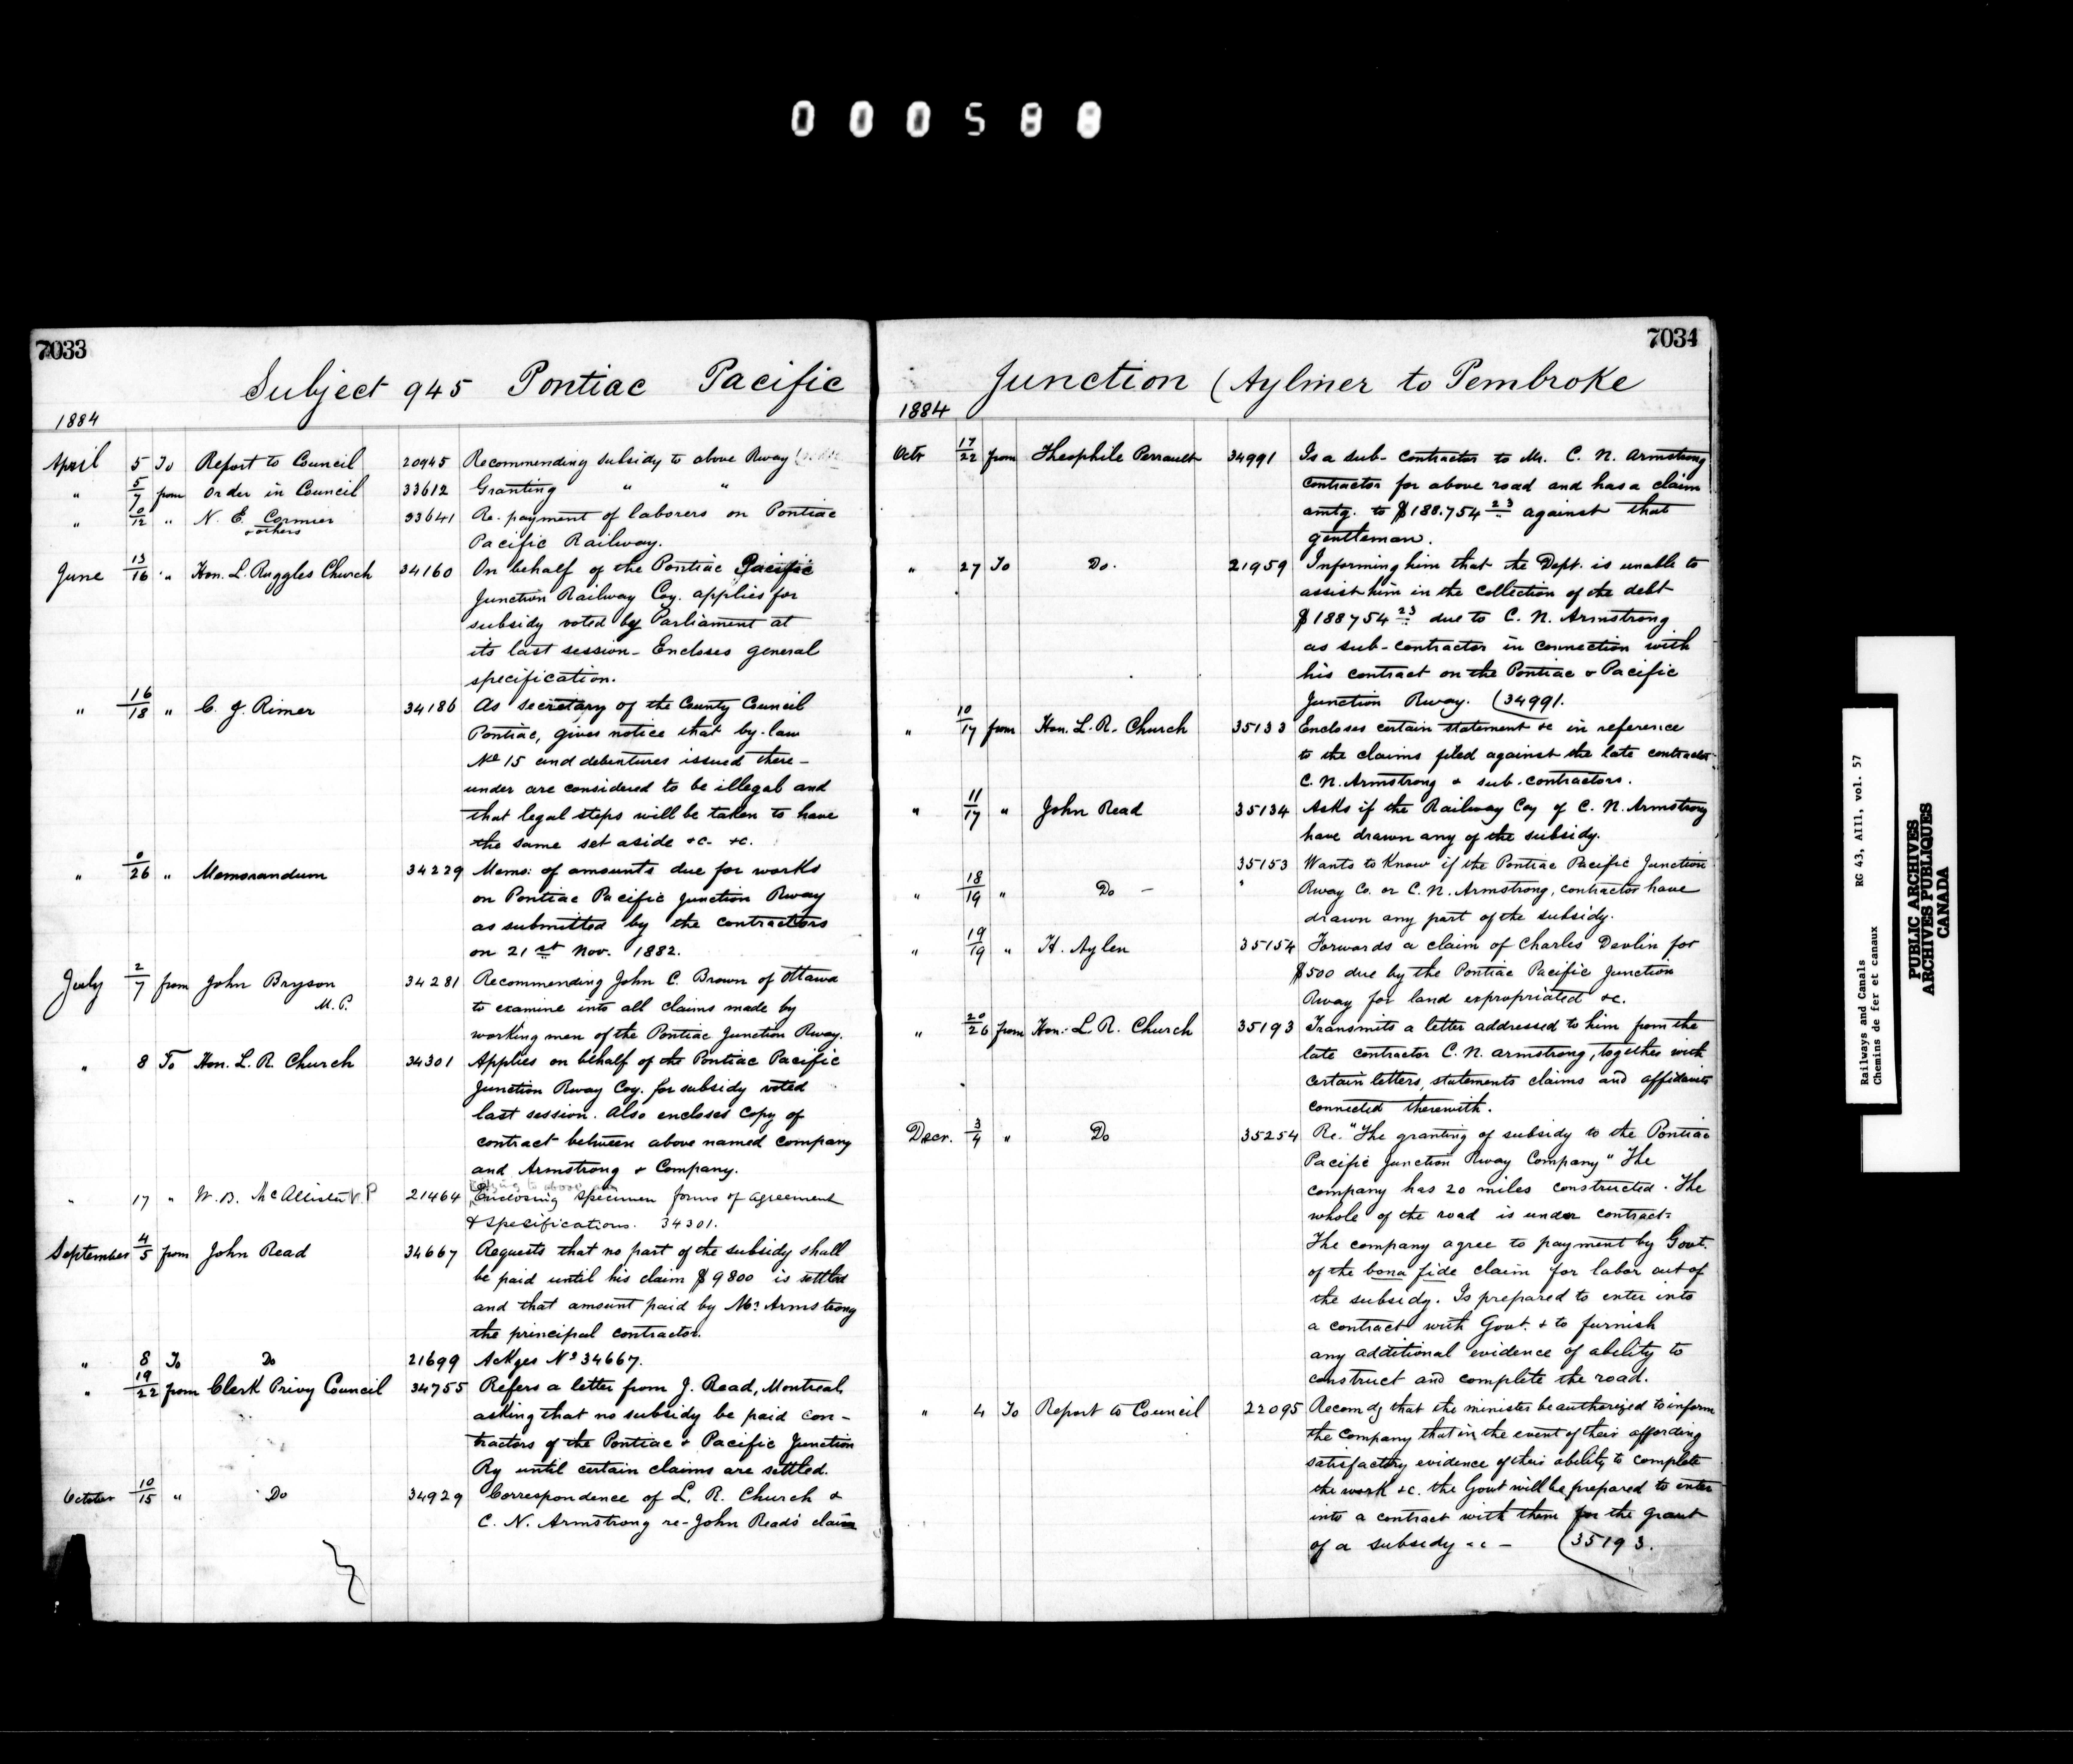 000588
7033
Subject 945 Pontiac Pacific
1884
April 5 To Report to Council 20945 Recommending subsidy to above Rway
" 5/7 from Order in Council 33612 Granting " "
" 0/12 " N. E. Cormier & others 33641 Re- payment of laborers on Pontiac
Pacific Railway.
June 13/16 " Hon. L. Ruggles Church 34160 On behalf of the Pontiac Pacific
Junction Railway Coy. applies for
subsidy voted by Parliament at
its last session - Encloses general
specification.
" 16/18 " C. J. Rimer 34186 As secretary of the County Council
Pontiac, gives notice that by-law
No 15 and debentures issued there-
under are considered to be illegal and
that legal steps will be taken to have
the same set aside &c. &c.
" 0/26 " Memorandum 34229 Memo: of amounts due for works
on Pontiac Pacific Junction Rway
as submitted by the contractors
on 21st Nov. 1882.
July 2/7 from John Bryson M.P. 34281 Recommending John C. Brown of Ottawa
to examine into all claims made by
working men of the Pontiac Junction Rway.
" 8 To Hon. L. R. Church 34301 Applies on behalf of the Pontiac Pacific
Junction Rway Coy. for subsidy voted
last session. Also encloses copy of
contract between above named company
and Armstrong & Company.
" 17 " W. B. McAllister V.P 21464 Enclosing specimen forms of agreement
& spesifications. 34301.
September 4/5 from John Read 34667 Requests that no part of the subsidy shall
be paid until his claim $9800 is settled
and that amount paid by Mr Armstrong
the principal contractor.
" 8 To Do 21699 Ackges No 34667.
" 19/22 from Clerk Privy Council 34755 Refers a letter from J. Read, Montreal,
asking that no subsidy be paid con-
tractors of the Pontiac & Pacific Junction
Ry until certain claims are settled.
October 10/15 " Do 34929 Correspondence of L. R. Church &
C. N. Armstrong re- John Read's claim
7034
Junction (Aylmer to Pembroke
1884
Octr 17/22 from Theophile Perrault 34991 Is a sub-contractor to Mr. C. N. Armstrong
contractor for above road and has a claim
amtg. to $188.754 23 against that
gentleman.
" 27 To Do. 21959 Informing him that the Dept. is unable to
assist him in the collection of the debt
$188754 23 due to C. N. Armstrong
as sub-contractor in connection with
his contract on the Pontiac & Pacific
Junction Rway. (34991.
" 10/17 from Hon. L. R. Church 35133 Encloses certain statement &c in reference
to the claims filed against the late contractor
C. N. Armstrong & sub-contractors.
" 11/17 " John Read 35134 Asks if the Railway Coy of C. N. Armstrong
have drawn any of the subsidy.
35153 Wants to know if the Pontiac Pacific Junction
" 18/19 " Do - " Rway Co. or C. N. Armstrong, contractor have
drawn any part of the subsidy.
" 19/19 " H. Aylen 35154 Forwards a claim of Charles Devlin for
$500 due by the Pontiac Pacific Junction
Rway for land expropriated &c.
" 20/26 from Hon. L. R. Church 35193 Transmits a letter addressed to him from the
late contractor C. N. Armstrong, together with
certain letters, statements claims and affidavits
connected therewith.
Decr. 3/4 " Do 35254 Re. "The granting of subsidy to the Pontiac
Pacific Junction Rway Company" The
company has 20 miles constructed. The
whole of the road is under contract:
The company agree to payment by Govt.
of the bona fide claim for labor out of
the subsidy. Is prepared to enter into
a contract with Govt. & to furnish
any additional evidence of ability to
construct and complete the road.
" 4 To Report to Council 22095 Recomdg that the minister be authorized to inform
the Company that in the event of their affording
satisfactory evidence of their ability to complete
the work &c. the Govt will be prepared to enter
into a contract with them for the grant
of a subsidy " " - (35193.
Railways and Canals RG 43, AIII, vol. 57
Chemins de fer et canaux
PUBLIC ARCHIVES
ARCHIVES PUBLIQUES
CANADA